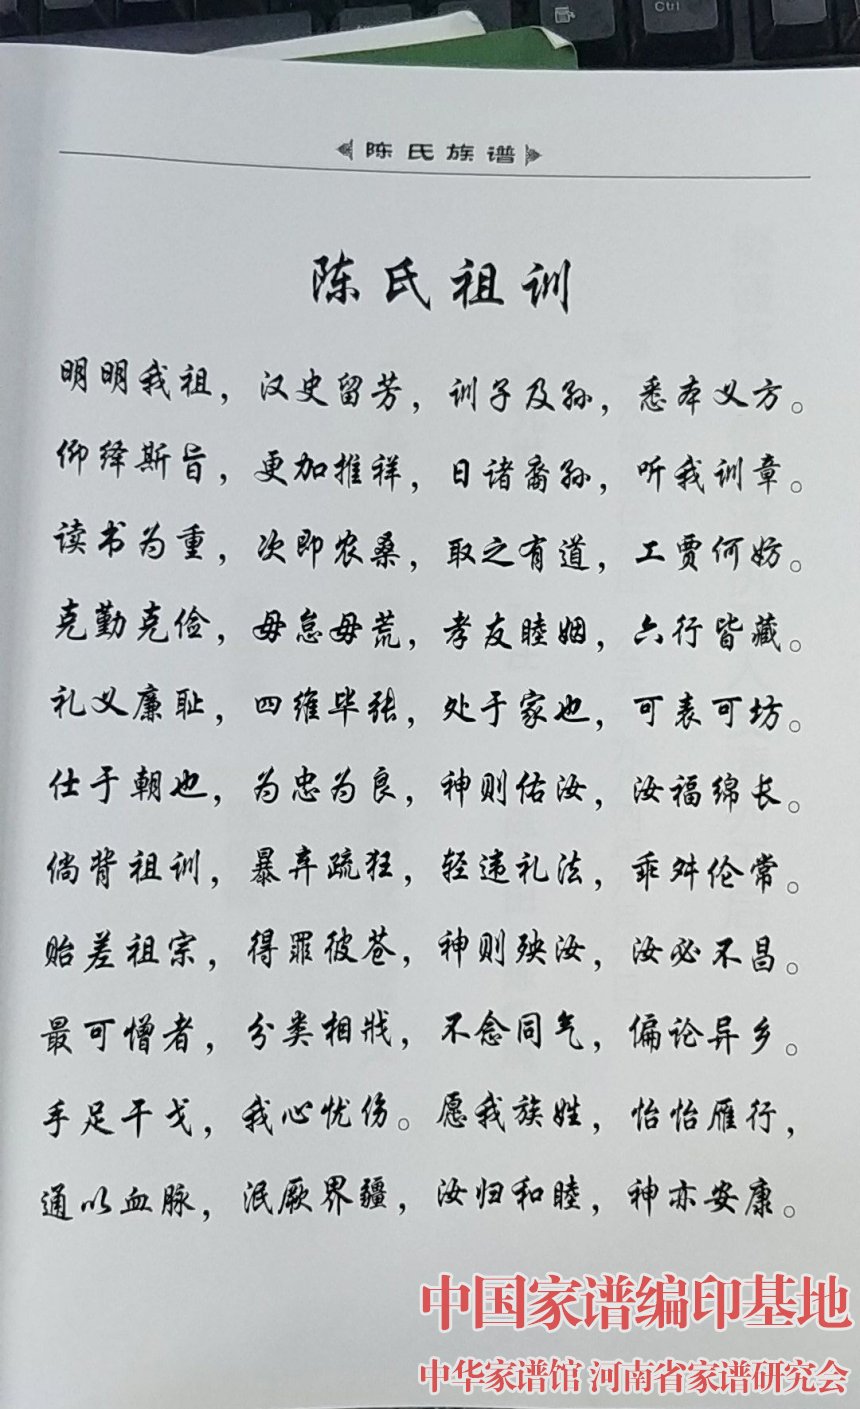 Ctrl
陈氏族谱
陈氏祖训
明明我祖，汉史留芳，训子及孙，悉本义方。
仰绎斯旨，更加推祥，日诸裔孙，听我训章。
读书为重，次即农桑，取之有道，工贾何妨。
克勤克俭，毋怠毋荒，孝友睦姻，六行皆藏。
礼义廉耻，四维毕张，处于家也，可表可坊。
仕于朝也，为忠为良，神则佑汝，汝福绵长。
倘背祖训，暴弃疏狂，轻违礼法，乖舛伦常。
贻差祖宗，得罪彼苍，神则殃汝，汝必不昌。
最可憎者，分类相戕，不念同气，偏论异乡。
手足干戈，我心忧伤。愿我族姓，怡怡雁行，
通以血脉，泯厥界疆，汝归和睦，神亦安康。
中国家谱编印基地
中华家谱馆 河南省家谱研究会